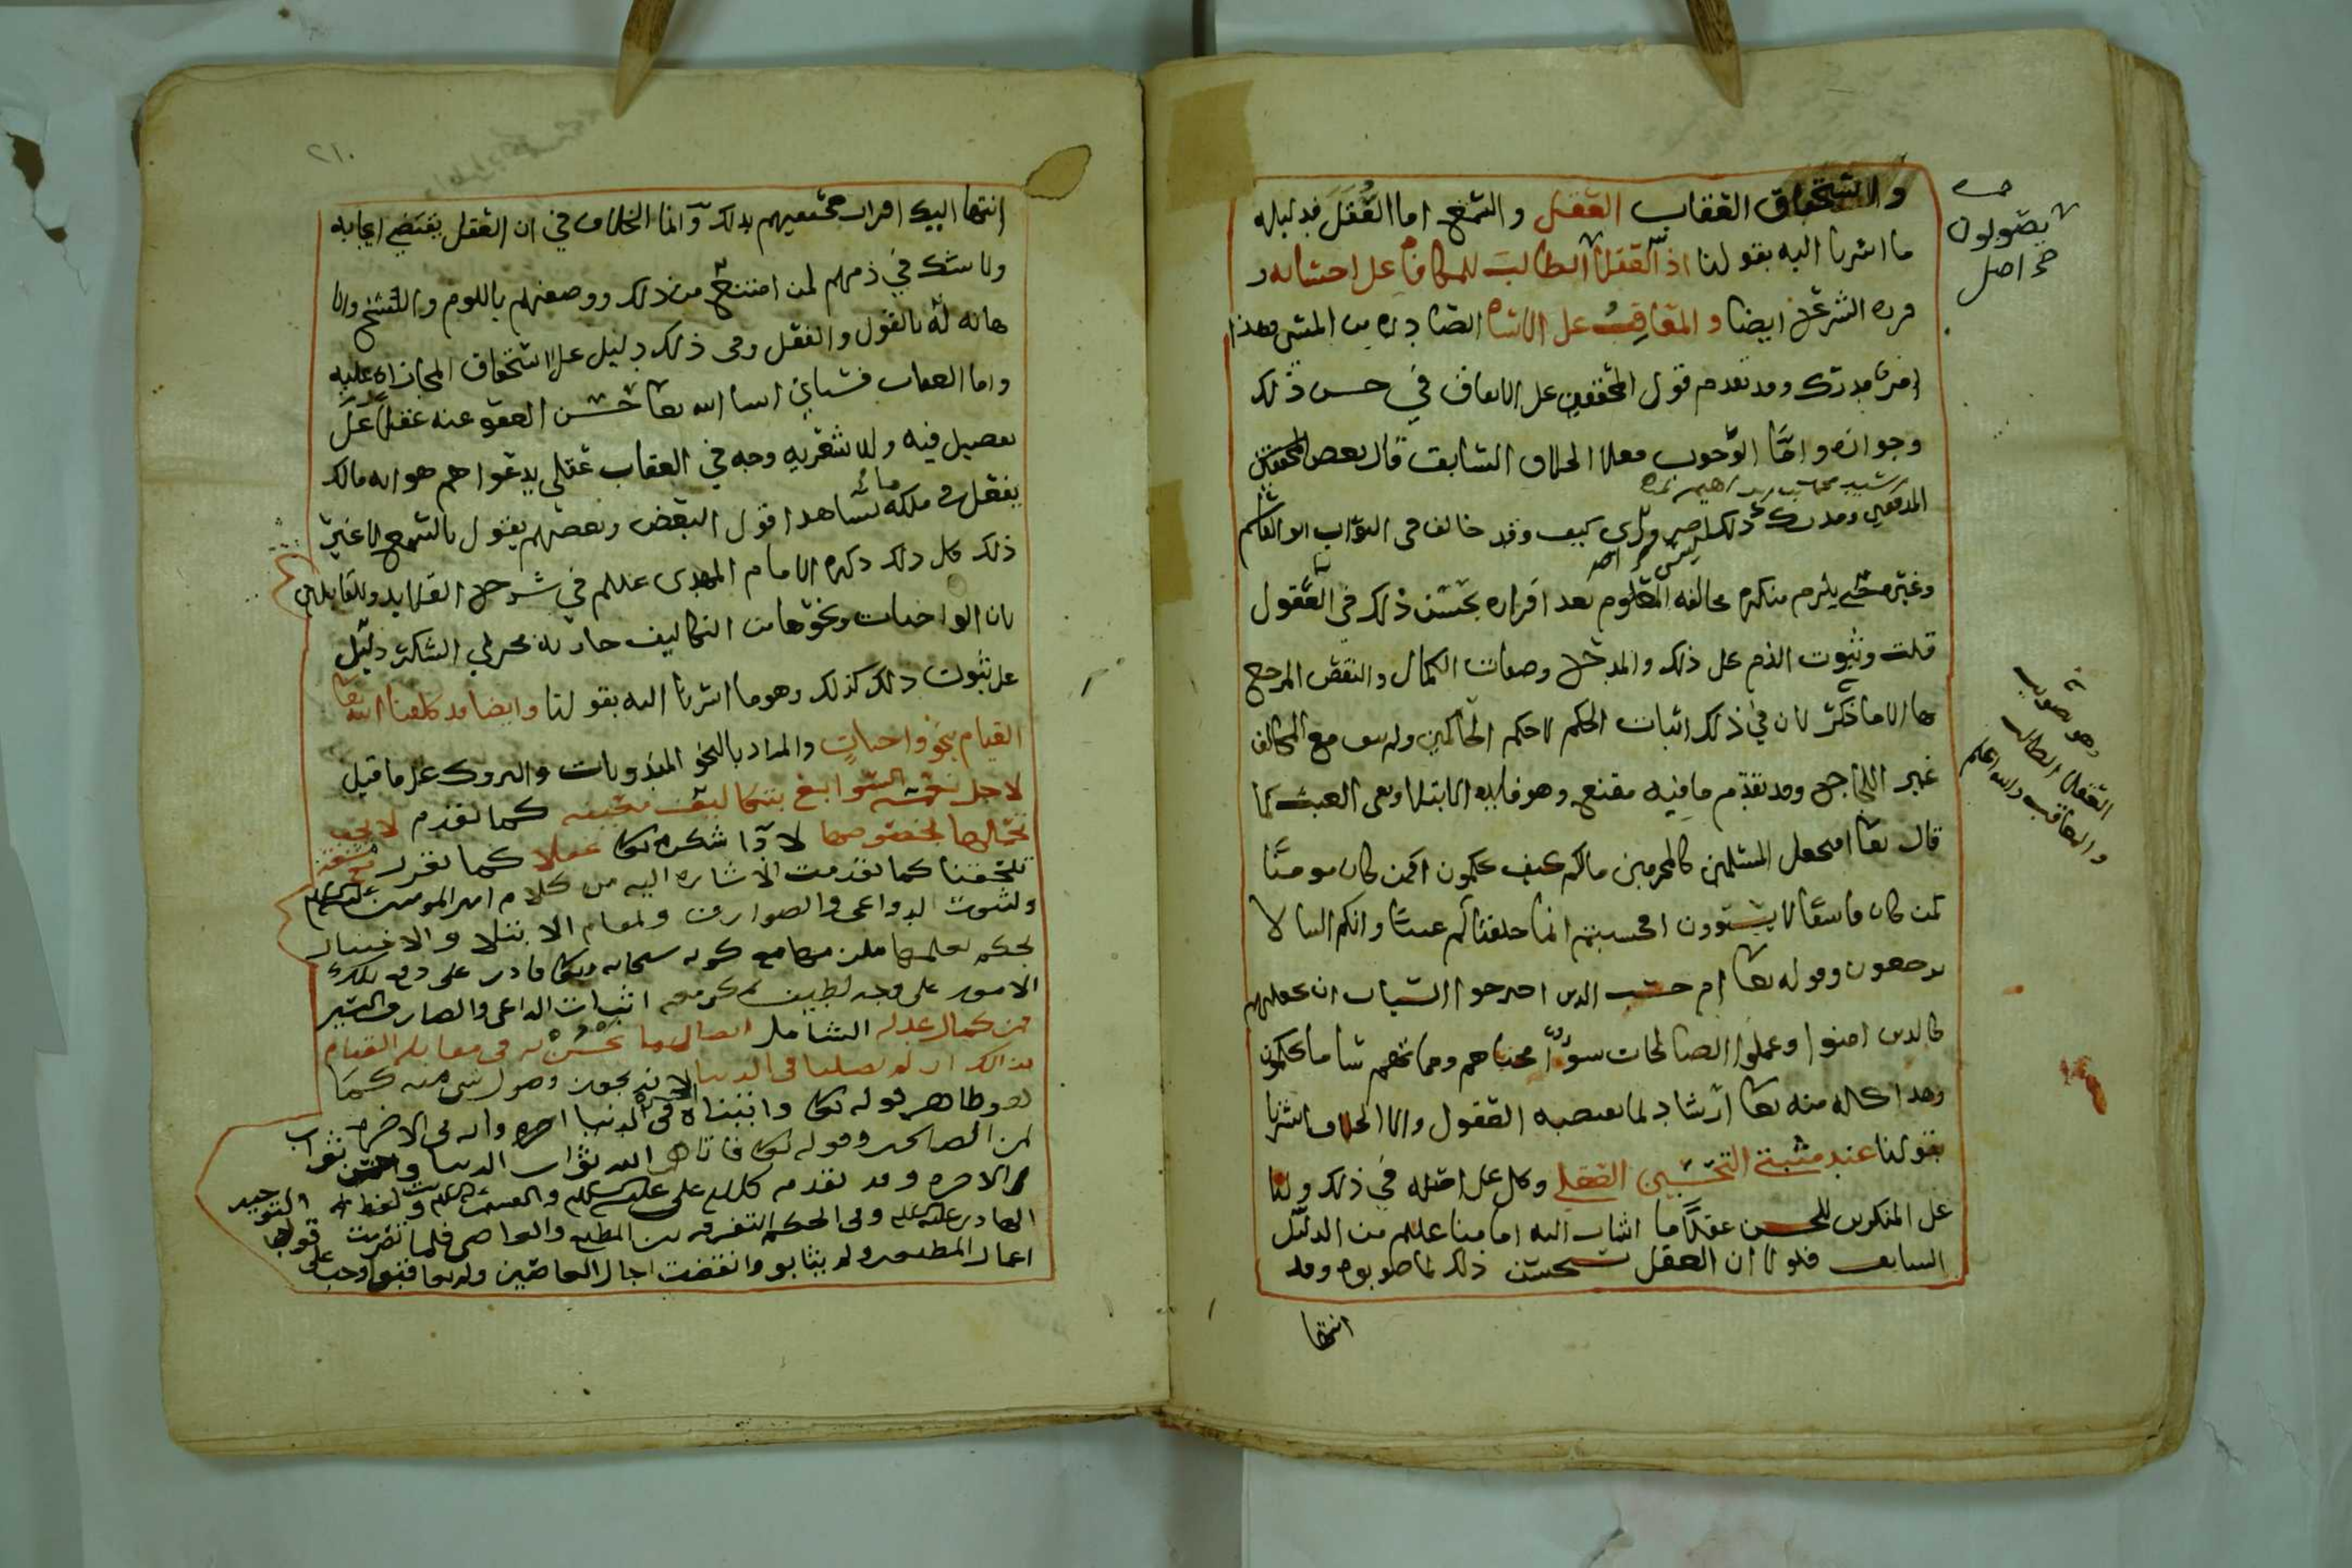 واستحقاق العقاب العقل والسمع اما العقل فدليله
ما اشرنا اليه بقولنا اذ العقلا الطالب للمكافاة على احسانه و
قرره الشرع ايضا والمعاقب على الاساه الصادره من المسي وهذا
وقد تقدم قول المحققين على الاتفاق في حسن ذلك
وجوازه واما الوجوب فعلى الخلاف السابق قال بعض المحققين
المدققين ومدرك ذلك كيف وقد خالف في الثواب ابو القاسم
وغيره حتى يلزم منكره مخالفة المعلوم بعد اقراره بحسن ذلك في العقول
قلت وثبوت الذم على ذلك والمدح وصفات الكمال والنقص المرجع
بها الى ما ذكر لان في ذلك اثبات الحكم لاحكم الحاكمين ولم يبق مع المخالف
غير اللجاج وقد تقدم ما فيه مقنع وهو فايدة الابتلا ونفي العبث كما
قال تعا افنجعل المسلمين كالمجرمين مالكم كيف تحكمون افمن كان مومنا
كمن كان فاسقا لا يستوون افحسبتم انما خلقناكم عبثا وانكم الينا لا
ترجعون وقوله تعا ام حسب الذين اجترحوا السيات ان نجعلهم
كالذين امنوا وعملوا الصالحات سواء محياهم ومماتهم سا ما يحكمون
وهذا كله منه تعا ارشاد لما تقتضيه العقول والى الخلاف اشرنا
بقولنا عند مثبتي التحسين العقلي وكل على اصله في ذلك ولنا
على المنكرين للحسن عقلا ما اشار اليه امامنا عللم من الدليل
السابق فلولا ان العقل يستحسن ذلك لما صوبوه وقد
انتها
يصوبون
اصل
وهو تصويب
العقلا الطالب
والمعاقب والله اعلم
٢١٠
انتها اليك اقرار جميعهم بذلك وانما الخلاف في ان العقل يقتضي ايجابه
ولا شك في ذمهم لمن امتنع من ذلك ووصفهم باللوم والشح والا
هانه له بالقول والفعل وفي ذلك دليل على استحقاق المجازاه عليه
واما العقاب فسياتي انشا الله تعا حسن العفو عنه عقلا على
تفصيل فيه وللاشعريه وجه في العقاب عقلي يدعوا هم هو انه مالك
يفعل في ملكه ما شاء هذا قول البعض وبعضهم يقول بالسمع لا غير
ذلك كل ذلك ذكره الامام المهدي عللم في شرح القلايد وللقايلين
بان الواجبات ونحوها من التكاليف جاريه مجرى الشكر دليل
على ثبوت ذلك كذلك وهو ما اشرنا اليه بقولنا وايضا قد كلفنا الله تعا
القيام بنحو واجبات والمراد بالنحو المندوبات والتروك على ما قيل
لاجل نعمه السوابغ بتكاليف كما تقدم
تحملها لخصوصها لا اذا شكره تعا عقلا كما تقرر
تلحقنا كما تقدمت الاشاره اليه من كلام امير المومنين
ولثبوت الدواعي والصوارف ولمقام الابتلا والاختبار
لحكم يعلمها مع كونه سبحانه وتعا قادر على دفع تلك
الامور على وجه لطيف اثبات الداعي والصارف
فمن كمال عدله الشامل ايصال ما يحسن له في مقابله القيام
بذالك ان لم يصلنا في الدنيا لانه يجوز وصول شي منه كما
هو ظاهر قوله تعا واتيناه في الدنيا اجره وانه في الاخره
لمن الصالحين وقوله تعا فاتاهم الله ثواب الدنيا وحسن ثواب
الاخره وقد تقدم كلام علي
الهادي وفي الحكم التفرقه بين المطيع والعاصي فلما
اعمار المطيعين ولم يثابوا وانقضت اجال العاصين ولم يعاقبوا وجب على